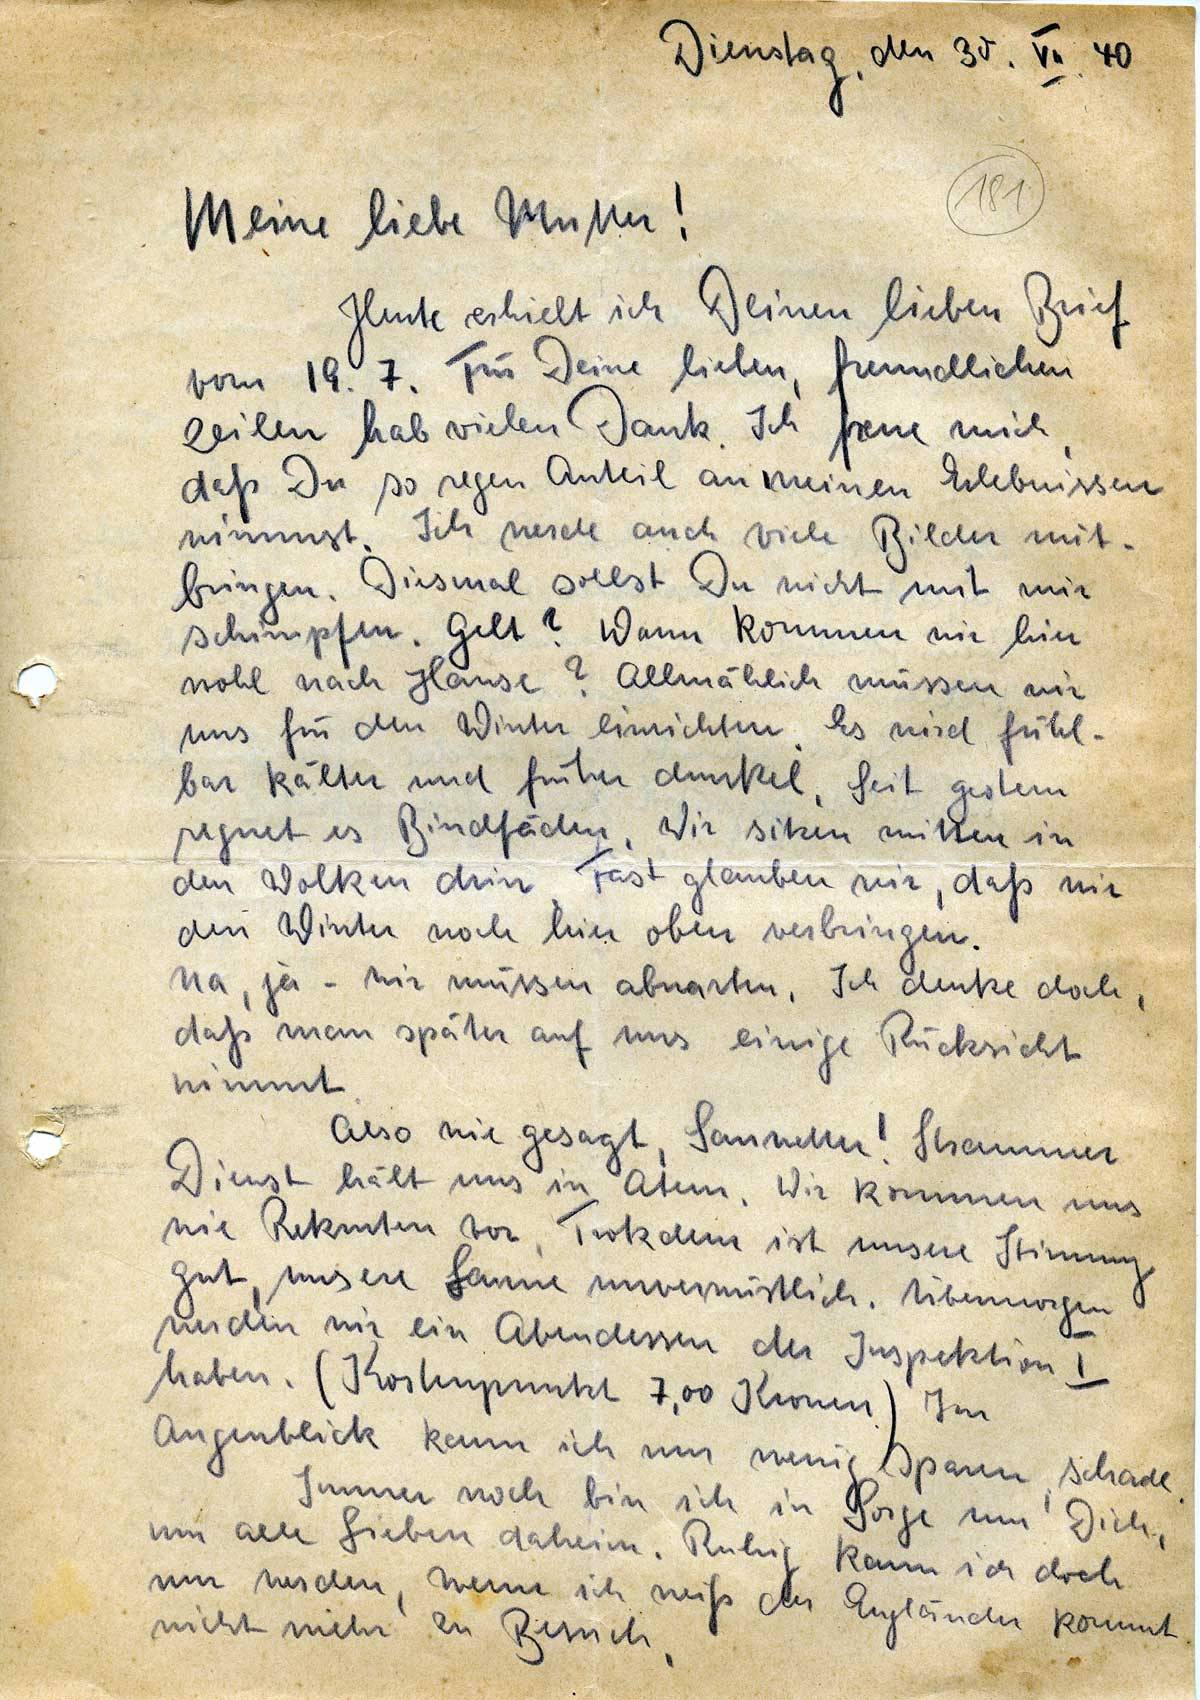 Dienstag, den 30. VII. 40
181
Meine liebe Mutter!
Heute erhielt ich Deinen lieben Brief
vom 19. 7. Für Deine lieben, freundlichen
Zeilen hab vielen Dank. Ich freue mich,
daß Du so regen Anteil an meinen Erlebnissen
nimmst. Ich werde auch viele Bilder mit-
bringen. Diesmal sollst Du nicht mit mir
schimpfen. Gelt? Wann kommen wir hier
wohl nach Hause? Allmählich müssen wir
uns für den Winter einrichten. Es wird fühl-
bar kälter und früher dunkel. Seit gestern
regnet es Bindfäden. Wir sitzen mitten in
den Wolken drin. Fast glauben wir, daß wir
den Winter noch hier oben verbringen.
Na, ja - wir müssen abwarten. Ich denke doch,
daß man später auf uns einige Rücksicht
nimmt.
Also wie gesagt, Sauwetter! Strammer
Dienst hält uns in Atem. Wir kommen uns
wie Rekruten vor. Trotzdem ist unsere Stimmung
gut, unsere Laune unverwüstlich. Übermorgen
werden wir ein Abendessen der Inspektion I
haben. (Kostenpunkt 7,00 Kronen.) Im
Augenblick kann ich nur wenig sparen, schade.
Immer noch bin ich in Sorge um Dich,
um alle Lieben daheim. Ruhig kann ich doch
nur werden, wenn ich weiß der Engländer kommt
nicht mehr zu Besuch.